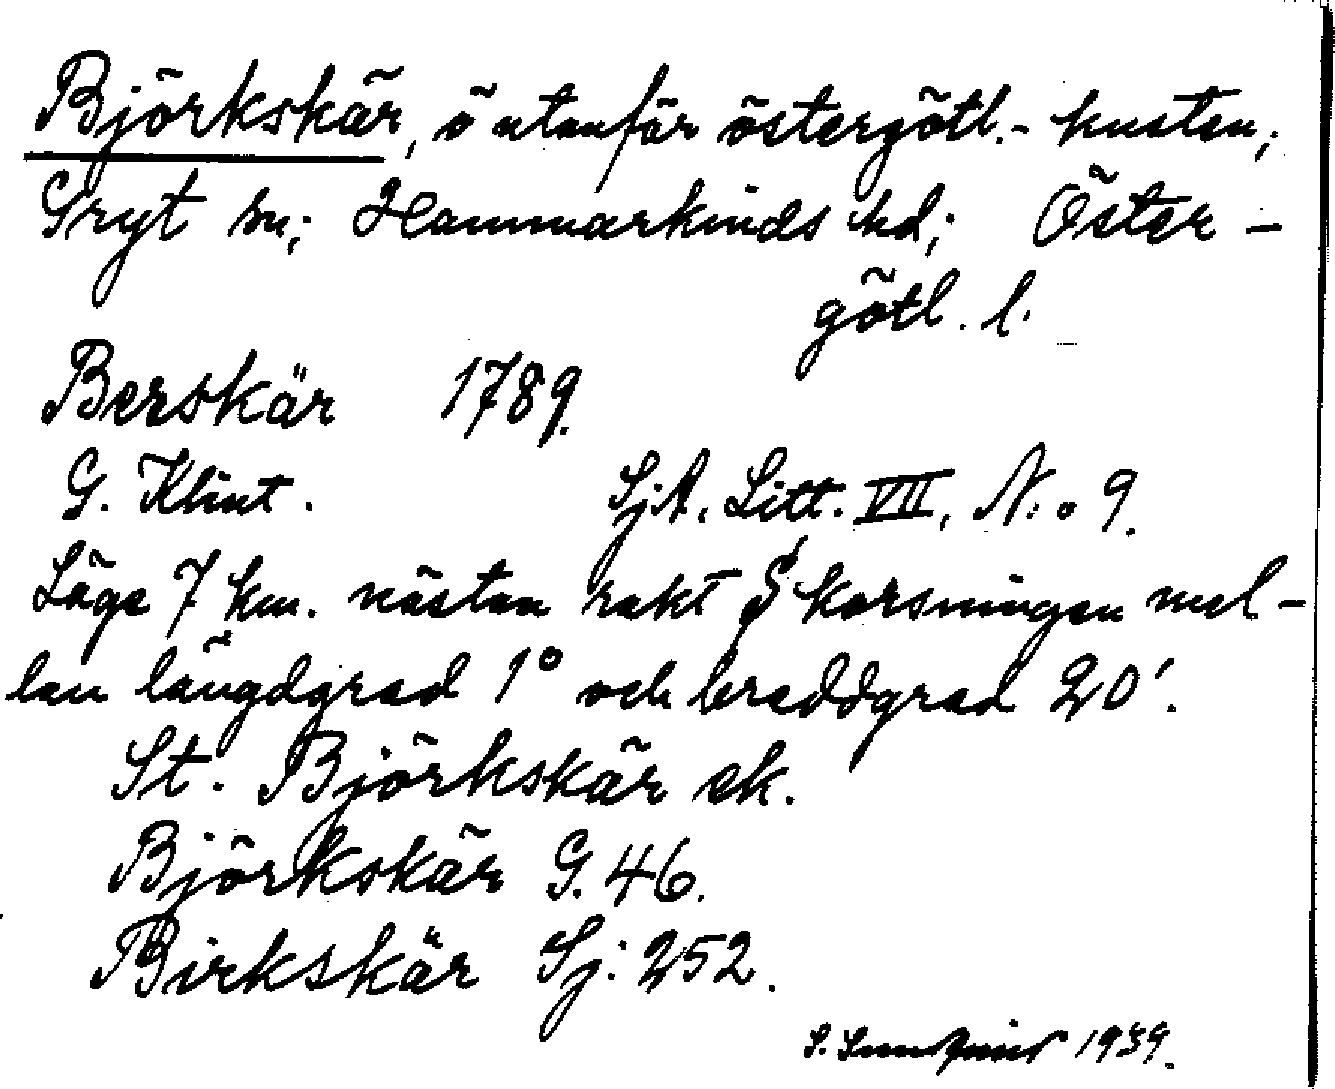 Björkskär, ö utanför östergötl.- kusten,
Gryt sn; Hammarkinds hd; Öster-
götl. l.
Berskär 1789.
G. Klint. SjA. Litt. VII, N:o 9.
Läge 7 km. nästan rakt S korsningen mel-
lan längdgrad 1° och breddgrad 20'.
St. Björkskär ek.
Björkskär G. 46.
Birkskär Sj: 252.
S. 1939.